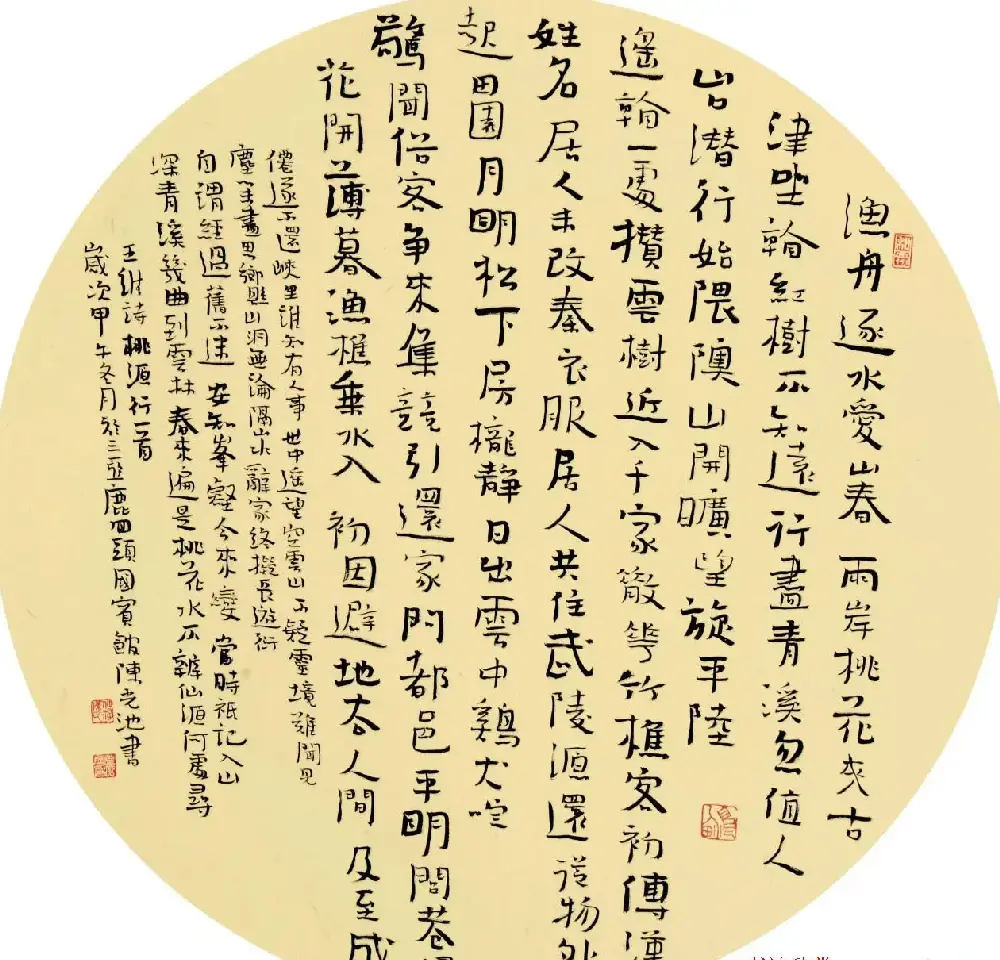 漁舟逐水愛山春兩岸桃花夾古
津坐看紅樹不知遠行盡青溪忽值人
山口潛行始隈隩山開曠望旋平陸
遙看一處攢雲樹近入千家散花竹樵客初傳漢
姓名居人未改秦衣服居人共住武陵源還從物外
起田園月明松下房櫳靜日出雲中鷄犬喧
驚聞俗客爭來集競引還家問都邑平明閭巷
花開薄暮漁樵乘水入初因避地去人間及至成
僊遂不還峽里誰知有人事世中遙望空雲山不疑靈境難聞見
塵心未盡思鄉縣出洞無論隔山水辭家終擬長遊衍
自謂經過舊不迷安知峯壑今來變當時祇記入山
深青溪幾曲到雲林春來遍是桃花水不辨仙源何處尋
王維詩桃源行一首
歲次甲午冬月於三亞鹿回頭國賓館陳光池書